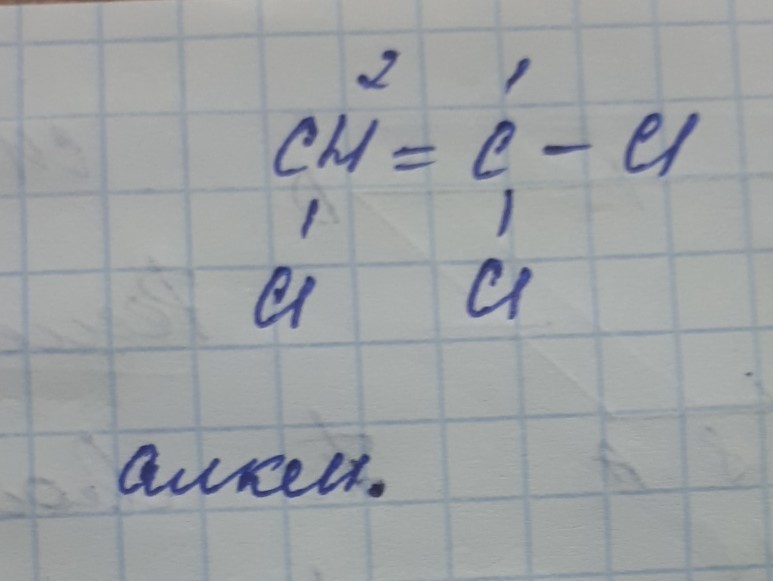 2 1
CH = C - Cl
| |
Cl Cl
алкен.